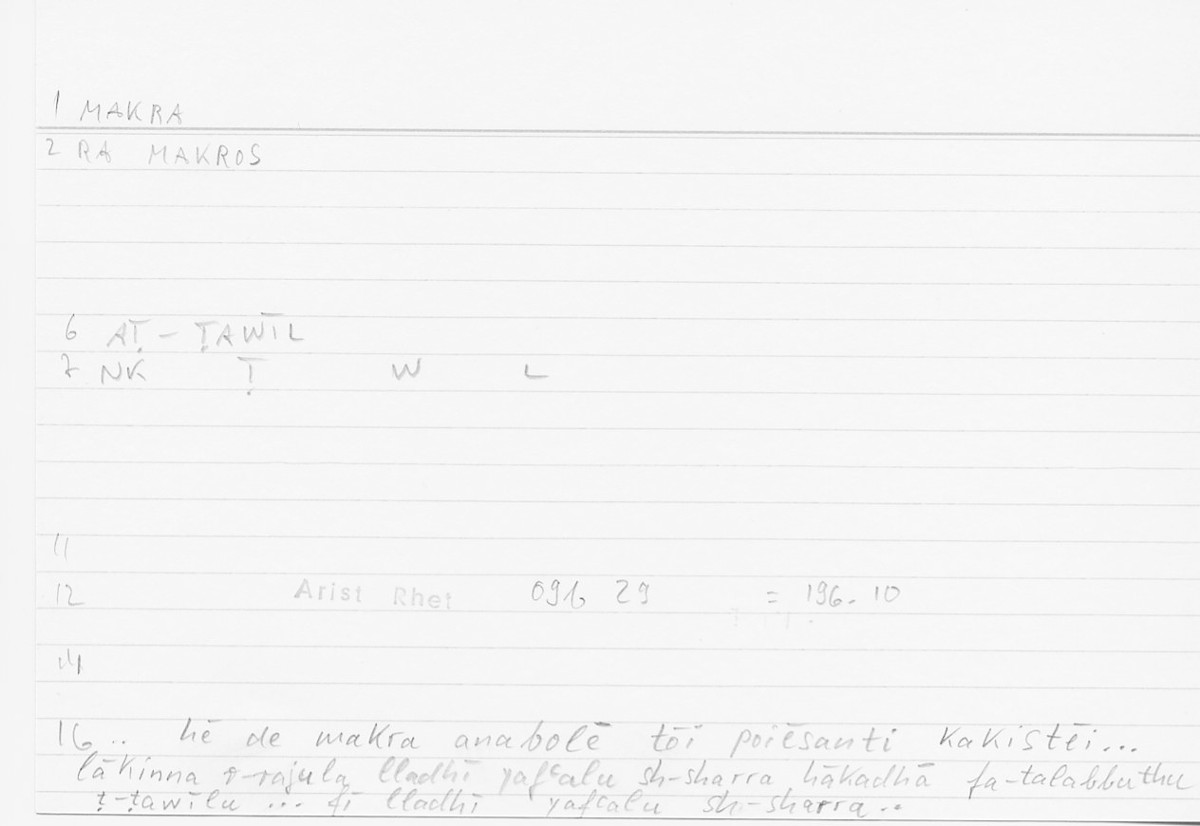 1 MAKRA
2 RA MAKROS
6 AṬ-ṬAWĪL
7 NK Ṭ W L
11
12 Arist Rhet 09b 29 = 196.10
14
16.. hē de makra anabolē tōi poiēsanti kakistēi...
lākinna r-rajula lladhī yafʿalu sh-sharra hākadhā fa-talabbuthu
ṭ-ṭawīlu ... fī lladhī yafʿalu sh-sharra..